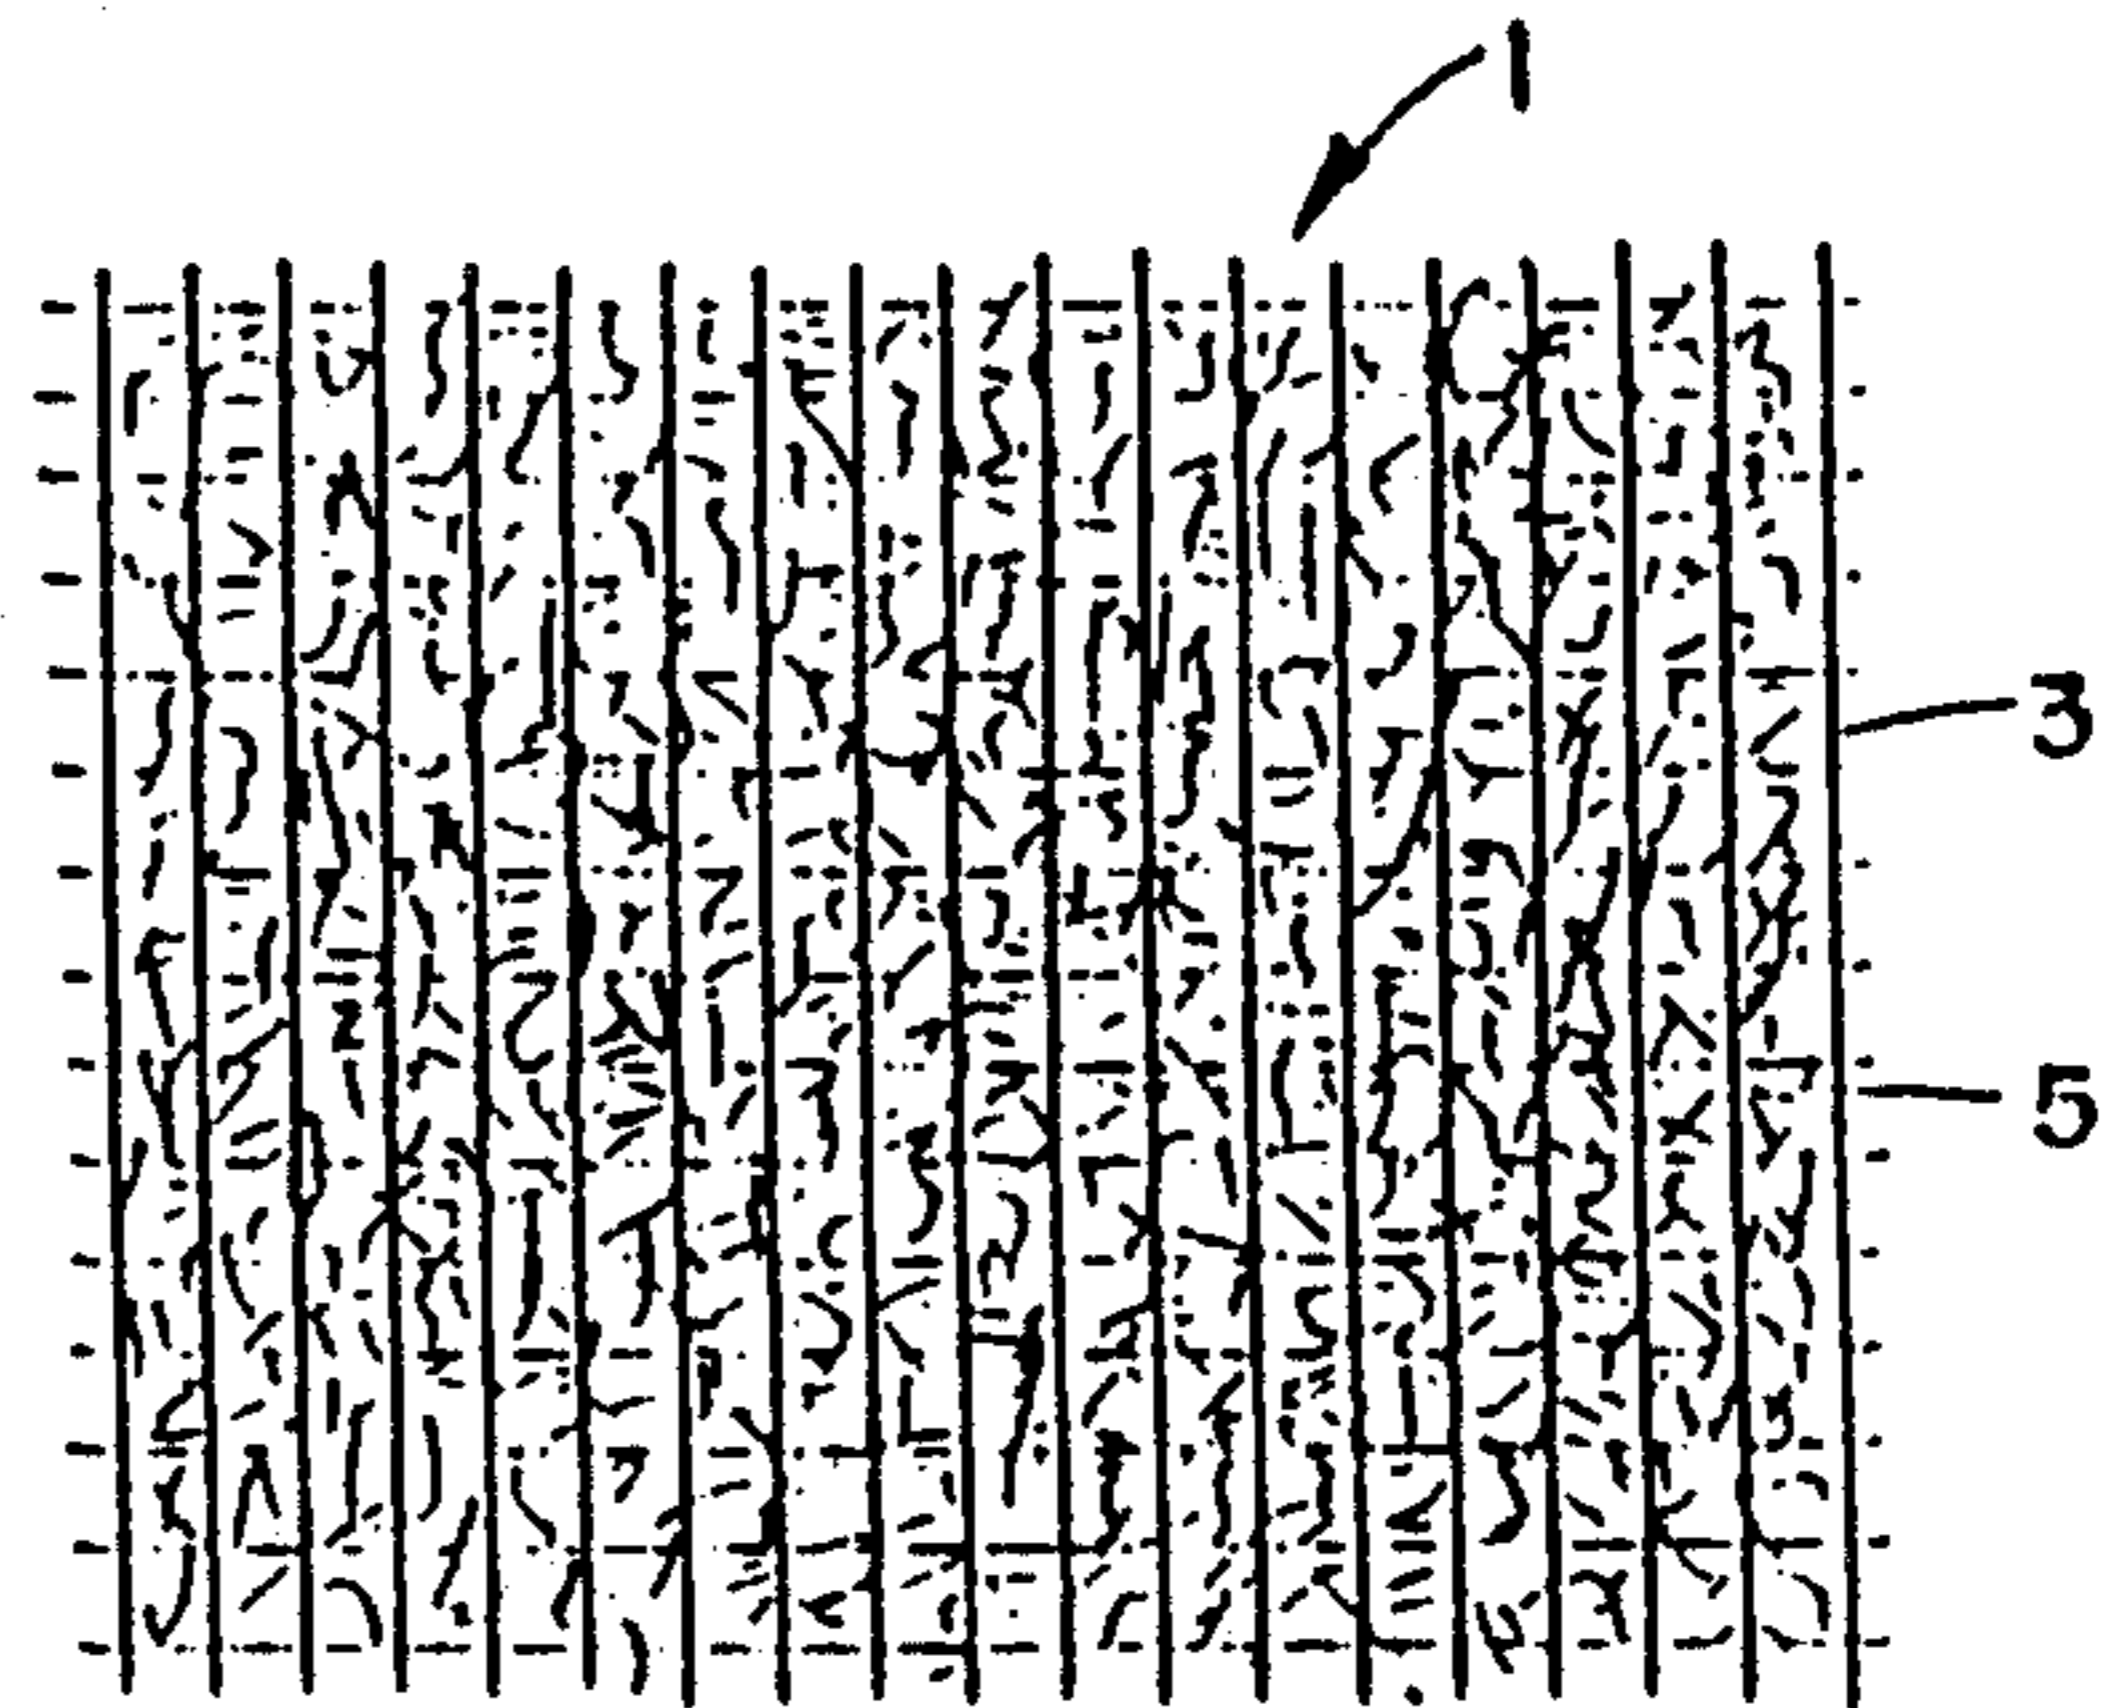 1
3
5